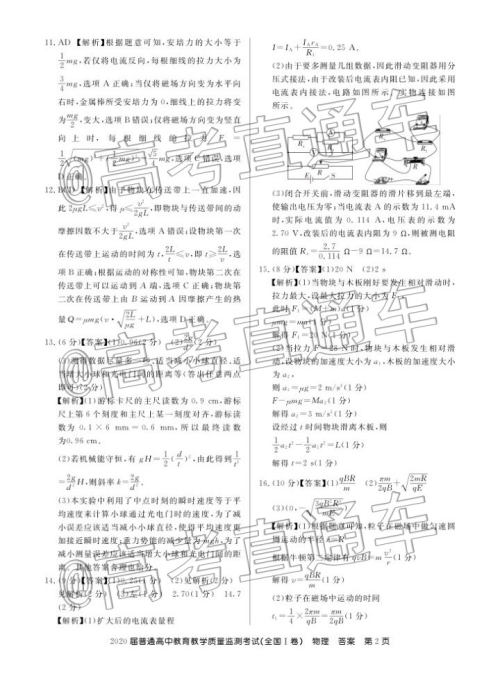 11. AD 【解析】根据题意可知，安培力的大小等于
1/2 mg，若仅将电流反向，每根细线的拉力大小为
3/4 mg，选项 A 正确；当仅将磁场方向变为水平向
右时，金属棒所受安培力为 0，细线上的拉力将变
为 mg/2，变大，选项 B 错误；仅将磁场方向变为竖直
向上时，每根细线的拉力 F =
mg，选项 C 错误，选项
D 正确。
12. BCD 【解析】由于物块在传送带上一直加速，因
此 2μgL≤v²，得 μ≤v²/2gL，即物块与传送带间的动
摩擦因数不大于 v²/2gL，选项 A 错误；设物块第一次
在传送带上运动的时间为 t，2L/t≤v，即 t≥2L/v，选
项 B 正确；根据运动的对称性可知，物块第二次在
传送带上可以运动到 A 端，选项 C 正确；物块第
二次在传送带上由 B 运动到 A 因摩擦产生的热
量 Q=μmg(v·√(2L/μg)+L)，选项 D 正确。
13. (6 分)【答案】(1)0.96(2 分) (2)2g/d²(2 分)
(3)测得数据尽量多一些、适当减小小球直径、适
当增大小球和光电门间的距离等(答出任意两点
即可)(2 分)
【解析】(1)游标卡尺的主尺读数为 0.9 cm，游标
尺上第 6 个刻度和主尺上某一刻度对齐，游标读
数为 0.1×6 mm=0.6 mm，所以最终读数
为0.96 cm。
(2)若机械能守恒，有 gH=1/2(d/t)²，由此得到 1/t²
=2g/d² H，则斜率 k=2g/d²。
(3)本实验中利用了中点时刻的瞬时速度等于平
均速度来计算小球通过光电门时的速度，为了减
小误差应该适当减小小球直径，使得平均速度更
加接近瞬时速度；重力势能的减少量为 mgh，为了
减小测量误差应该适当增大小球和光电门间的距
离。其他答案合理也给分。
14. (9 分)【答案】(1)0.25(1 分) (2)见解析(2 分)
见解析(2 分) (3)左(1 分) 2.70(1 分) 14.7
(2 分)
【解析】(1)扩大后的电流表量程
I=I_A+I_A r_A/R₁=0.25 A。
(2)由于要多测量几组数据，因此滑动变阻器用分
压式接法，由于改装后电流表内阻已知，因此采用
电流表内接法，电路如图所示，实物连接如图
所示。
(3)闭合开关前，滑动变阻器的滑片移到最左端，
使输出电压为零；当电流表 A 的示数为 11.4 mA
时，实际电流值为 0.114 A，电压表的示数为
2.70 V，改装后的电流表内阻为 9 Ω，则被测电阻
的阻值 Rₓ=2.7/0.114 Ω-9 Ω=14.7 Ω。
15. (8 分)【答案】(1)20 N (2)2 s
【解析】(1)当物块与木板刚好要发生相对滑动时，
拉力最大，设最大拉力的大小为 F₁，
此时 F₁=(M+m)a(1 分)
μmg=ma(1 分)
解得 F₁=20 N(1 分)
(2)当拉力 F= N 时，物块与木板发生相对滑
动，设物块的加速度大小为 a₁，木板的加速度大小
为 a₂，
则 a₁=μg=2 m/s²(1 分)
F-μmg=Ma₂(1 分)
解得 a₂=3 m/s²(1 分)
设经过 t 时间物块滑离木板，则
1/2 a₂t²-1/2 a₁t²=L(1 分)
解得 t=2 s(1 分)
16. (10 分)【答案】(1)qBR/m (2)πm/2qB+√(2mR/qE)
(3)(0，
【解析】(1)根据题意可知，粒子在磁场中做匀速圆
周运动的半径 r=R
根据牛顿第二定律有 qvB=m v²/r(1 分)
解得 v=qBR/m(1 分)
(2)粒子在磁场中运动的时间
t₁=1/4×2πm/qB=πm/2qB(1 分)
2020 届普通高中教育教学质量监测考试(全国Ⅰ卷) 物理 答案 第 2 页
@高考直通车
@高考直通车
@高考直通车